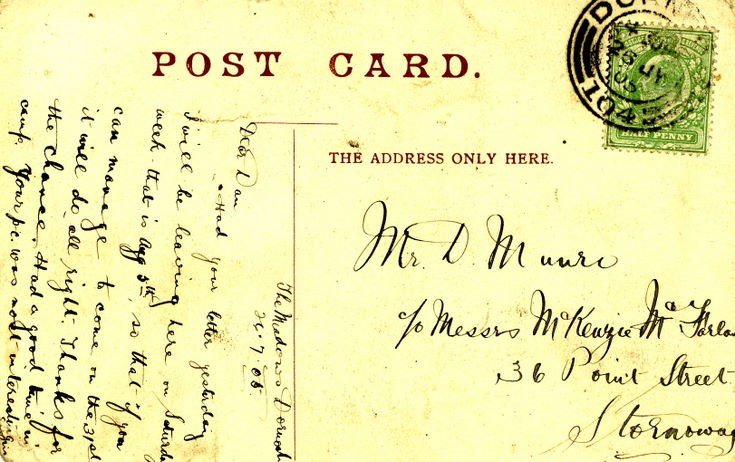 POST CARD.
THE ADDRESS ONLY HERE.
HALF PENNY
Mr. D. Munro
c/o Messrs McKenzie & McFarla
36 Point Street
Stornoway
The Meadows Dornoch
26.7.05.
Dear Dan
Had your letter yesterday
I will be leaving here on Saturda
week. that is Aug 5th, so that if you
can manage to come on the 31st
it will do all right. Thanks for
the chance. Had a good time in
camp. Your p.c. was most interesting